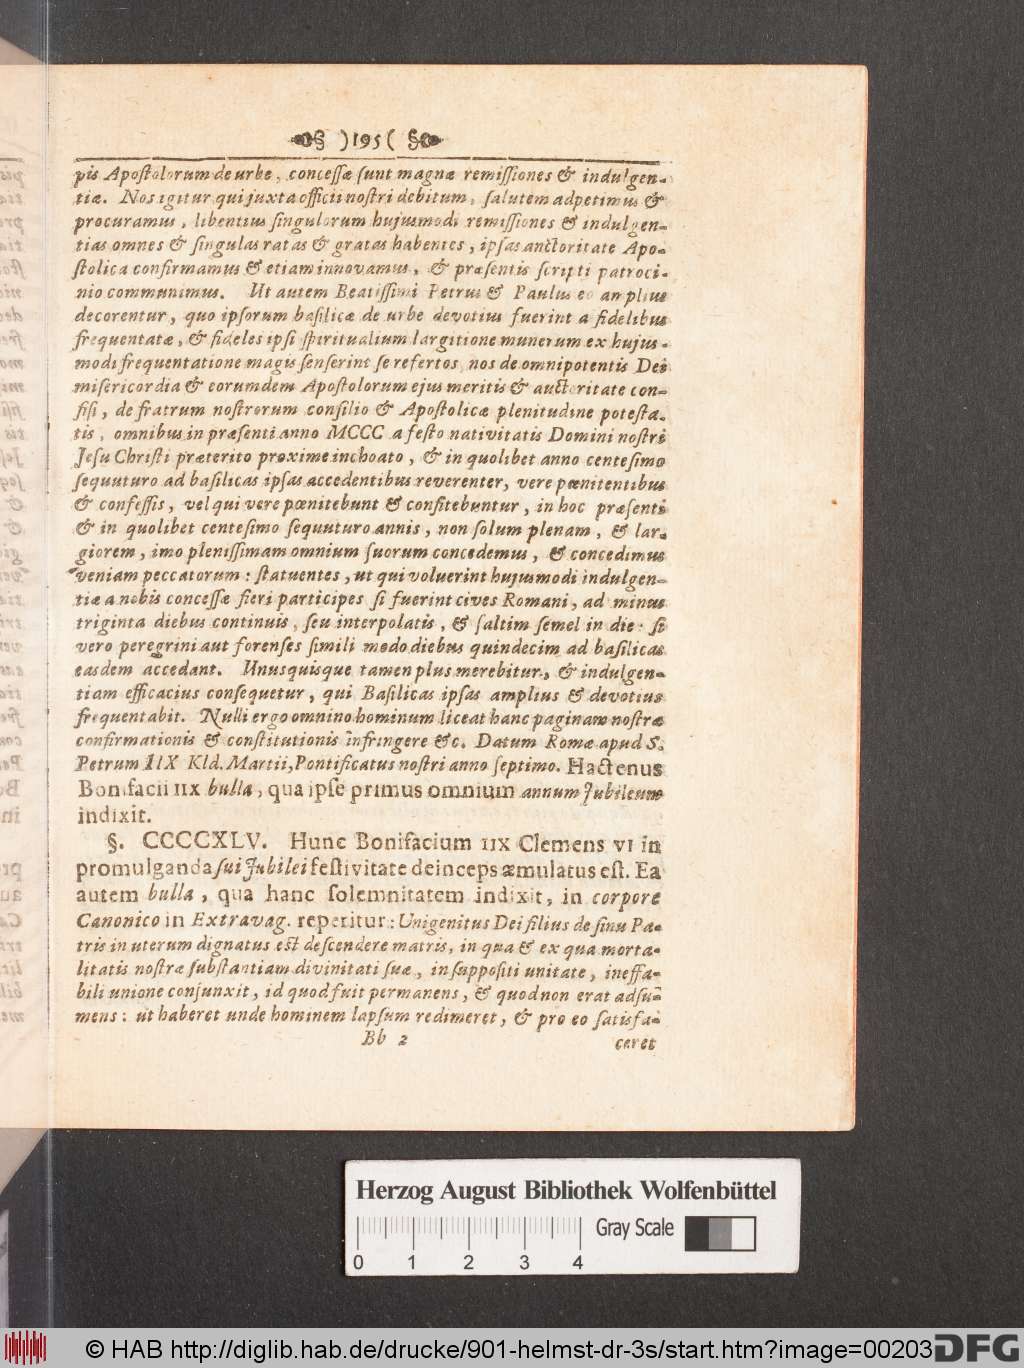 )195(
pis Apoſtolorum de urbe, conceſſæ ſunt magnæ remiſſiones & indulgen-
tiæ. Nos igitur qui juxta officii noſtri debitum, ſalutem adpetimus &
procuramus, libentius ſingulorum hujusmodi remiſſiones & indulgen-
tias omnes & ſingulas ratas & gratas habentes, ipſas auctoritate Apo-
ſtolica confirmamus & etiam innovamus, & præſentis ſcripti patroci-
nio communimus. Ut autem Beatiſſimi Petrus & Paulus eo amplius
decorentur, quo ipſorum baſilicæ de urbe devotius fuerint a fidelibus
frequentatæ, & fideles ipſi ſpiritualium largitione munerum ex hujus-
modi frequentatione magis ſenſerint ſe refertos, nos de omnipotentis Dei
miſericordia & eorumdem Apoſtolorum ejus meritis & auctoritate con-
fiſi, de fratrum noſtrorum conſilio & Apoſtolicæ plenitudine poteſta-
tis, omnibus in præſenti anno MCCC a feſto nativitatis Domini noſtri
Jeſu Chriſti præterito proxime inchoato, & in quolibet anno centeſimo
ſequuturo ad baſilicas ipſas accedentibus reverenter, vere pœnitentibus
& confeſſis, vel qui vere pœnitebunt & confitebuntur, in hoc præſenti
& in quolibet centeſimo ſequuturo annis, non ſolum plenam, & lar-
giorem, imo pleniſſimam omnium ſuorum concedemus, & concedimus
veniam peccatorum: ſtatuentes, ut qui voluerint hujusmodi indulgen-
tiæ a nobis conceſſæ fieri participes ſi fuerint cives Romani, ad minus
triginta diebus continuis, ſeu interpolatis, & ſaltim ſemel in die: ſi
vero peregrini aut forenſes ſimili modo diebus quindecim ad baſilicas
easdem accedant. Unusquisque tamen plus merebitur, & indulgen-
tiam efficacius conſequetur, qui Baſilicas ipſas amplius & devotius
frequentabit. Nulli ergo omnino hominum liceat hanc paginam noſtræ
confirmationis & conſtitutionis infringere &c. Datum Romæ apud S.
Petrum IIX Kld. Martii, Pontificatus noſtri anno ſeptimo. Hactenus
Bonifacii IIX bulla, qua ipſe primus omnium annum Jubileum
indixit.
§. CCCCXLV. Hunc Bonifacium IIX Clemens VI in
promulganda ſui Jubilei feſtivitate deinceps æmulatus eſt. Ea
autem bulla, qua hanc ſolemnitatem indixit, in corpore
Canonico in Extravag. reperitur: Unigenitus Dei filius de ſinu Pa-
tris in uterum dignatus eſt deſcendere matris, in qua & ex qua morta-
litatis noſtræ ſubſtantiam divinitati ſuæ, in ſuppoſiti unitate, ineffa-
bili unione conjunxit, id quod fuit permanens, & quod non erat adſu-
mens: ut haberet unde hominem lapſum redimeret, & pro eo ſatisfa-
Bb 2 ceret
Herzog August Bibliothek Wolfenbüttel
Gray Scale
0 1 2 3 4
© HAB http://diglib.hab.de/drucke/901-helmst-dr-3s/start.htm?image=00203
DFG